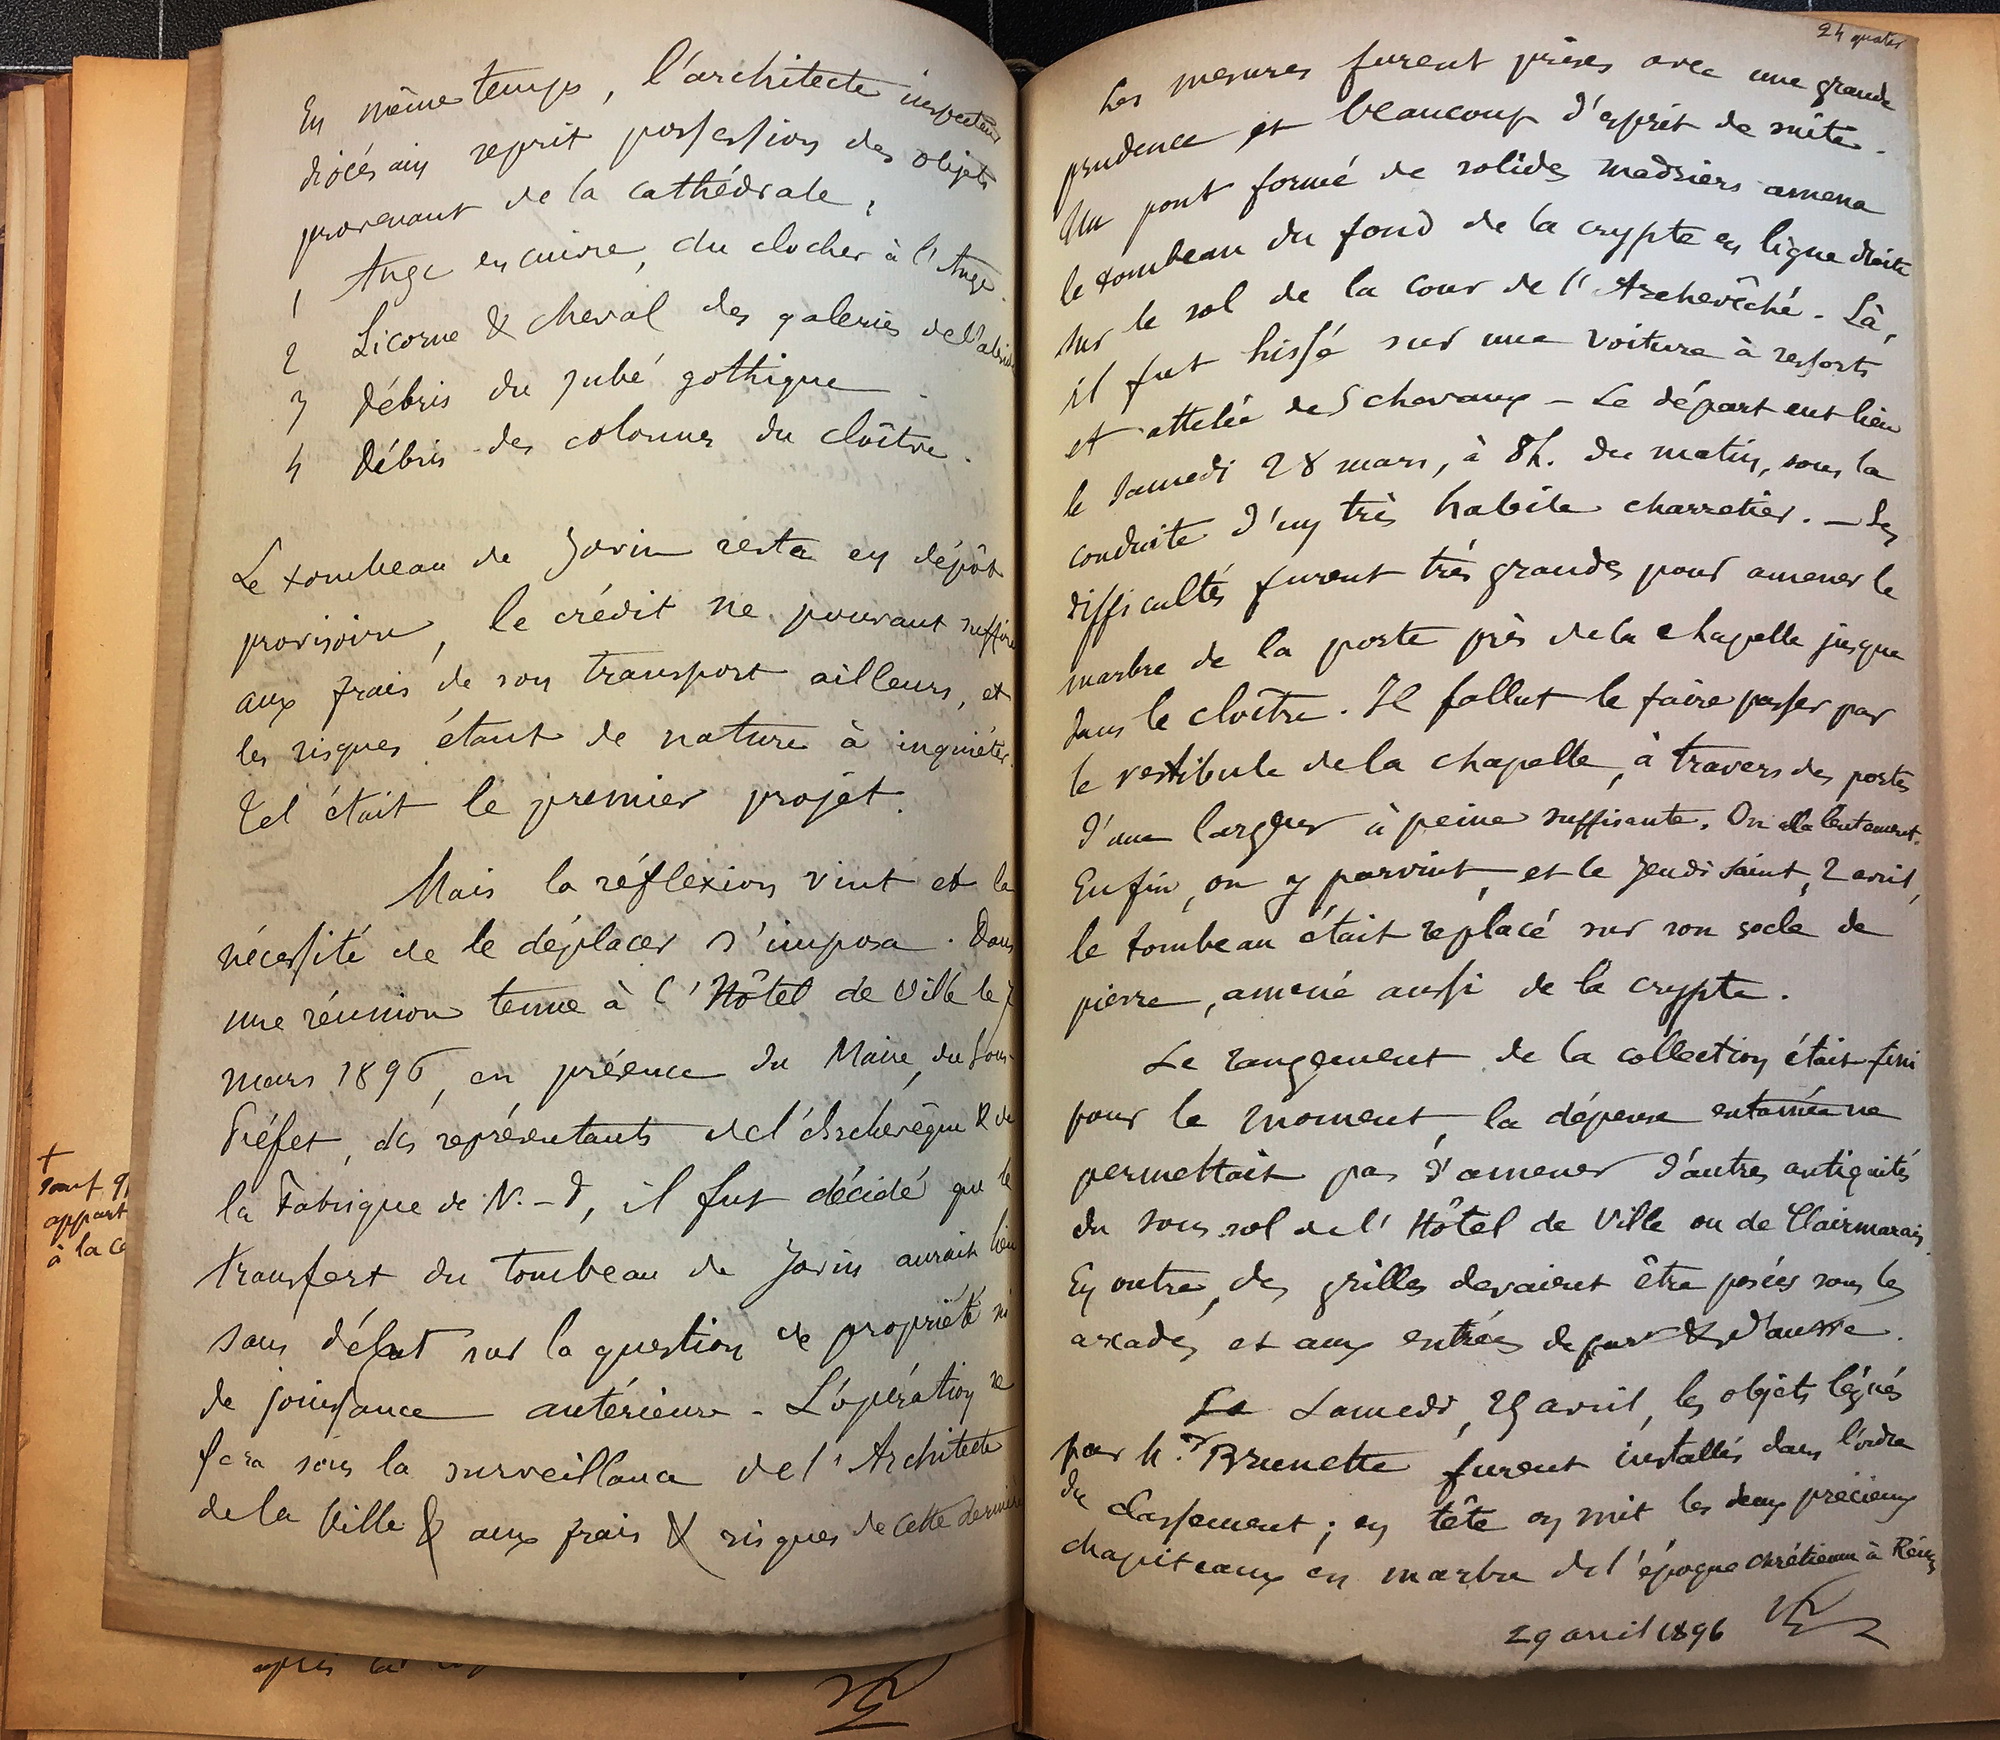 En même temps, l'architecte inspecteur
diocésain reprit possession des objets
provenant de la cathédrale :
1 Ange en cuivre, du clocher à l'Ange.
2 Licorne & cheval des galeries de l'abside
3 Débris du jubé gothique
4 Débris des colonnes du cloître.
Le tombeau de Jovin resta en dépôt
provisoire, le crédit ne pouvant suffire
aux frais de son transport ailleurs, et
les risques étant de nature à inquiéter.
Tel était le premier projet.
Mais la réflexion vint et la
nécessité de le déplacer s'imposa. Dans
une réunion tenue à l'Hôtel de Ville le 7
mars 1896, en présence du Maire, du Sous-
Préfet, des représentants de l'Archevêque & de
la Fabrique de N.-D, il fut décidé que le
transfert du tombeau de Jovin aurait lieu
sans débat sur la question de propriété ni
de jouissance antérieure - L'opération se
fera sous la surveillance de l'Architecte
de la Ville & aux frais & risques de cette dernière
+
sont
appart
à la
après
24 quater
Les mesures furent prises avec une grande
prudence et beaucoup d'esprit de suite.
Un pont formé de solides madriers amena
le tombeau du fond de la crypte en ligne droite
sur le sol de la cour de l'Archevêché. Là,
il fut hissé sur une voiture à ressorts
et attelée de 5 chevaux - Le départ eut lieu
le samedi 28 mars, à 8h. du matin, sous la
conduite d'un très habile charretier. - Les
difficultés furent très grandes pour amener le
marbre de la porte près de la chapelle jusque
dans le cloître. Il fallut le faire passer par
le vestibule de la chapelle, à travers des portes
d'une largeur à peine suffisante. On alla lentement.
Enfin, on y parvint, et le Jeudi saint, 2 avril,
le tombeau était replacé sur son socle de
pierre, amené aussi de la crypte.
Le rangement de la collection était fini
pour le moment, la dépense entamée ne
permettait pas d'amener d'autres antiquités
du sous-sol de l'Hôtel de Ville ou de Clairmarais.
En outre, des grilles devaient être posées sous les
arcades et aux entrées de part & d'autre.
Le Samedi, 25 avril, les objets légués
par Mr Brunette furent installés dans l'ordre
du classement ; en tête on mit les deux précieux
chapiteaux en marbre de l'époque chrétienne à Reims
29 avril 1896